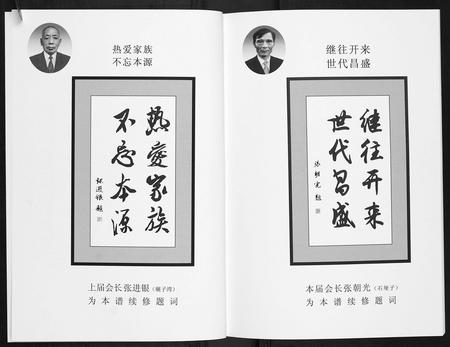 热爱家族
不忘本源
热爱家族
不忘本源
张进银题
上届会长张进银（碾子湾）
为本谱续修题词
继往开来
世代昌盛
继往开来
世代昌盛
张朝光题
本届会长张朝光（石埂子）
为本谱续修题词